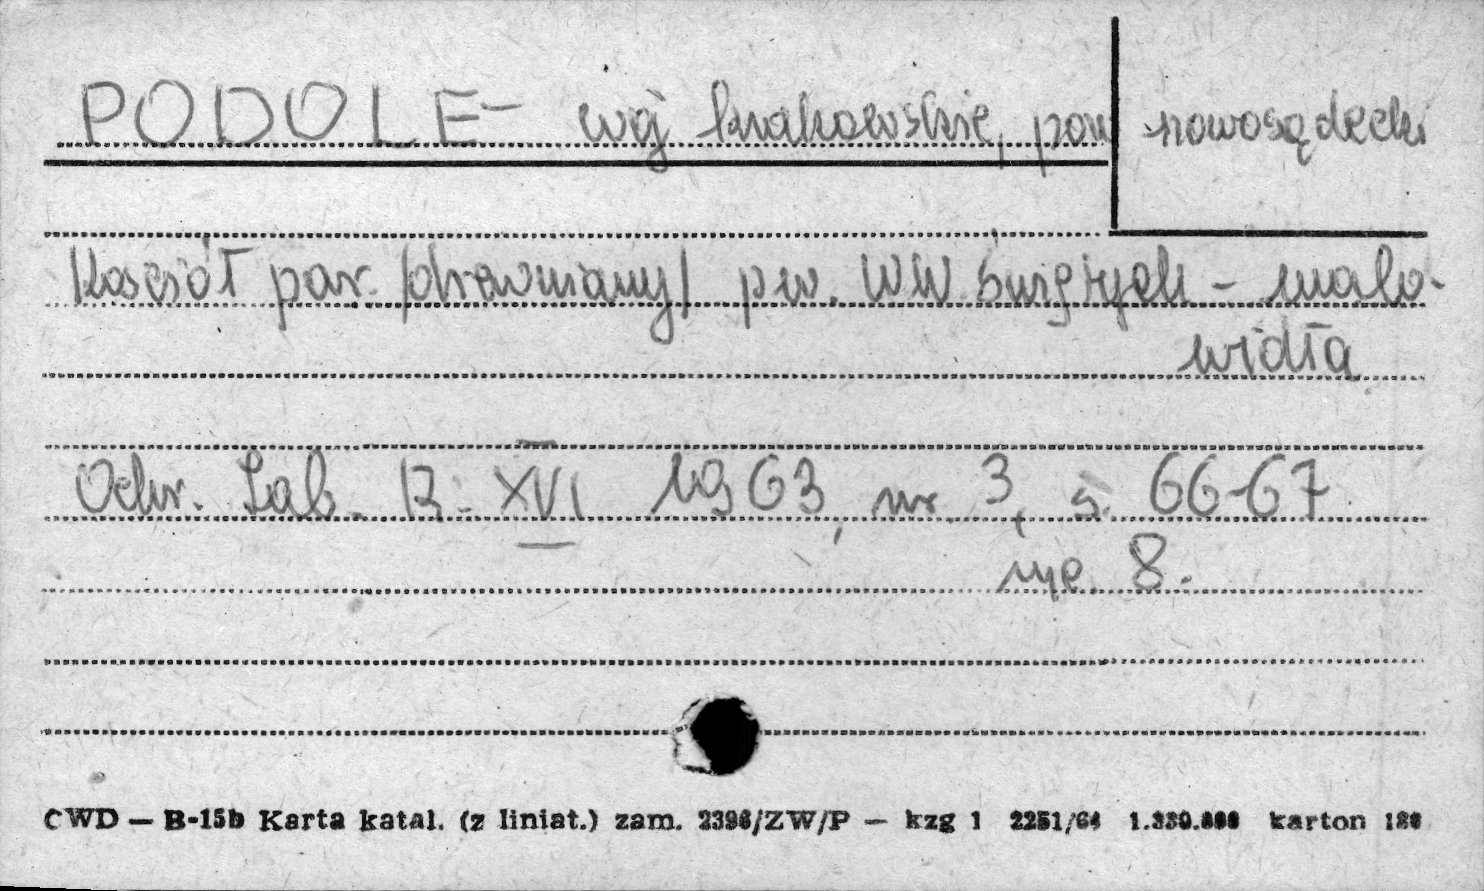 PODOLE - woj krakowskie, pow nowosądecki
Kościół par. /drewniany/ p.w. WW. Świętych - malo-
widła
Ochr. Zab. R. XVI 1963, nr 3, s. 66-67
ryc. 8.
CWD — B-15b Karta katal. (z liniat.) zam. 2396/ZW/P — kzg 1 2251/64 karton